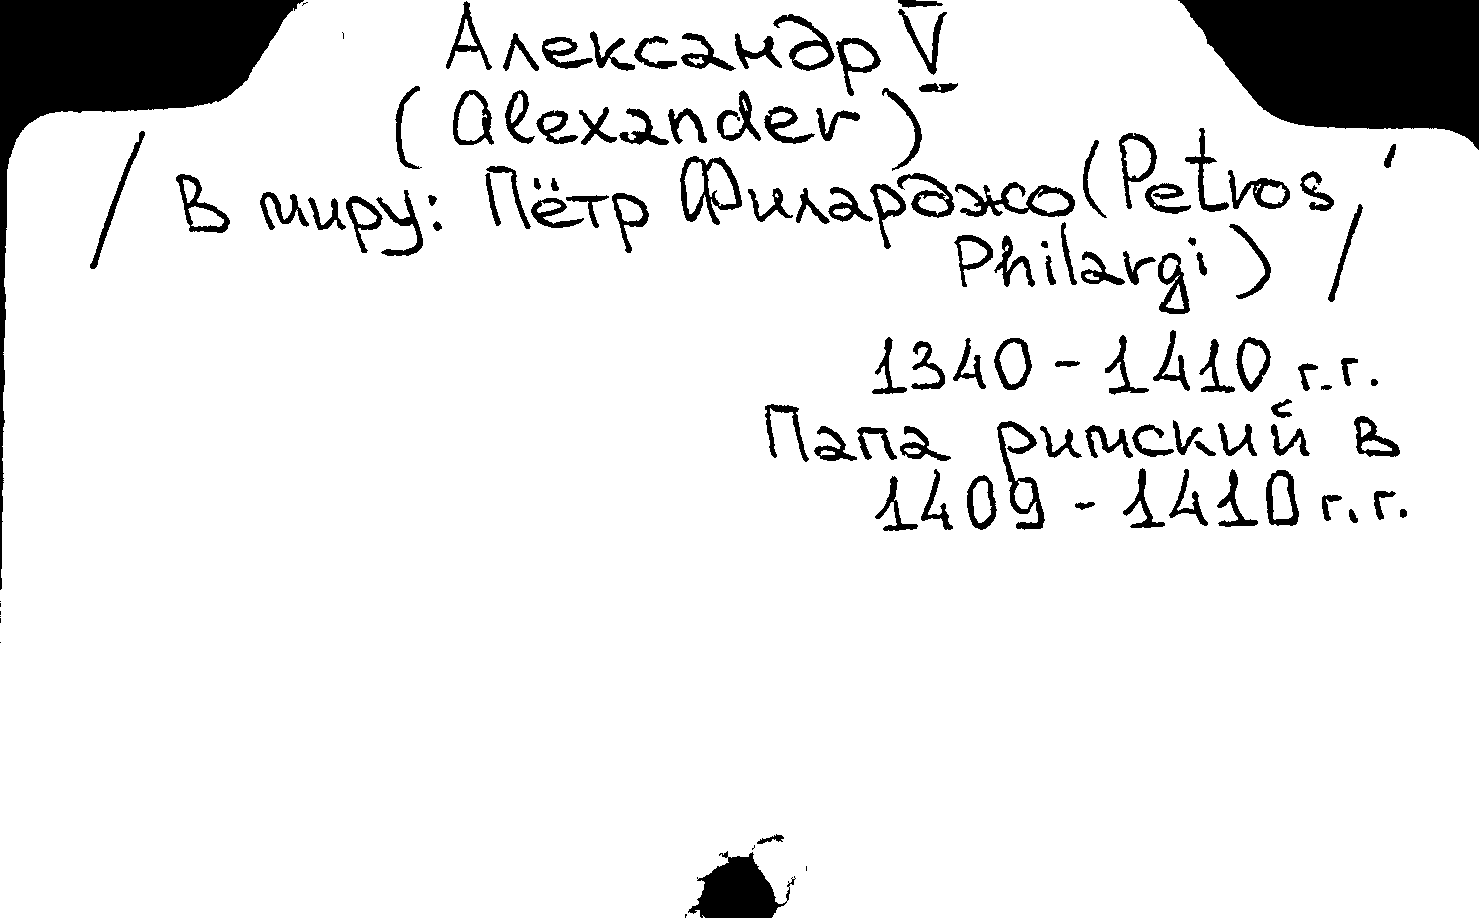 Александр V
(Alexander)
/ В миру: Пётр Филарджо (Petros
Philargi) /
1340 - 1410 г.г.
Папа римский в
1409 - 1410 г.г.